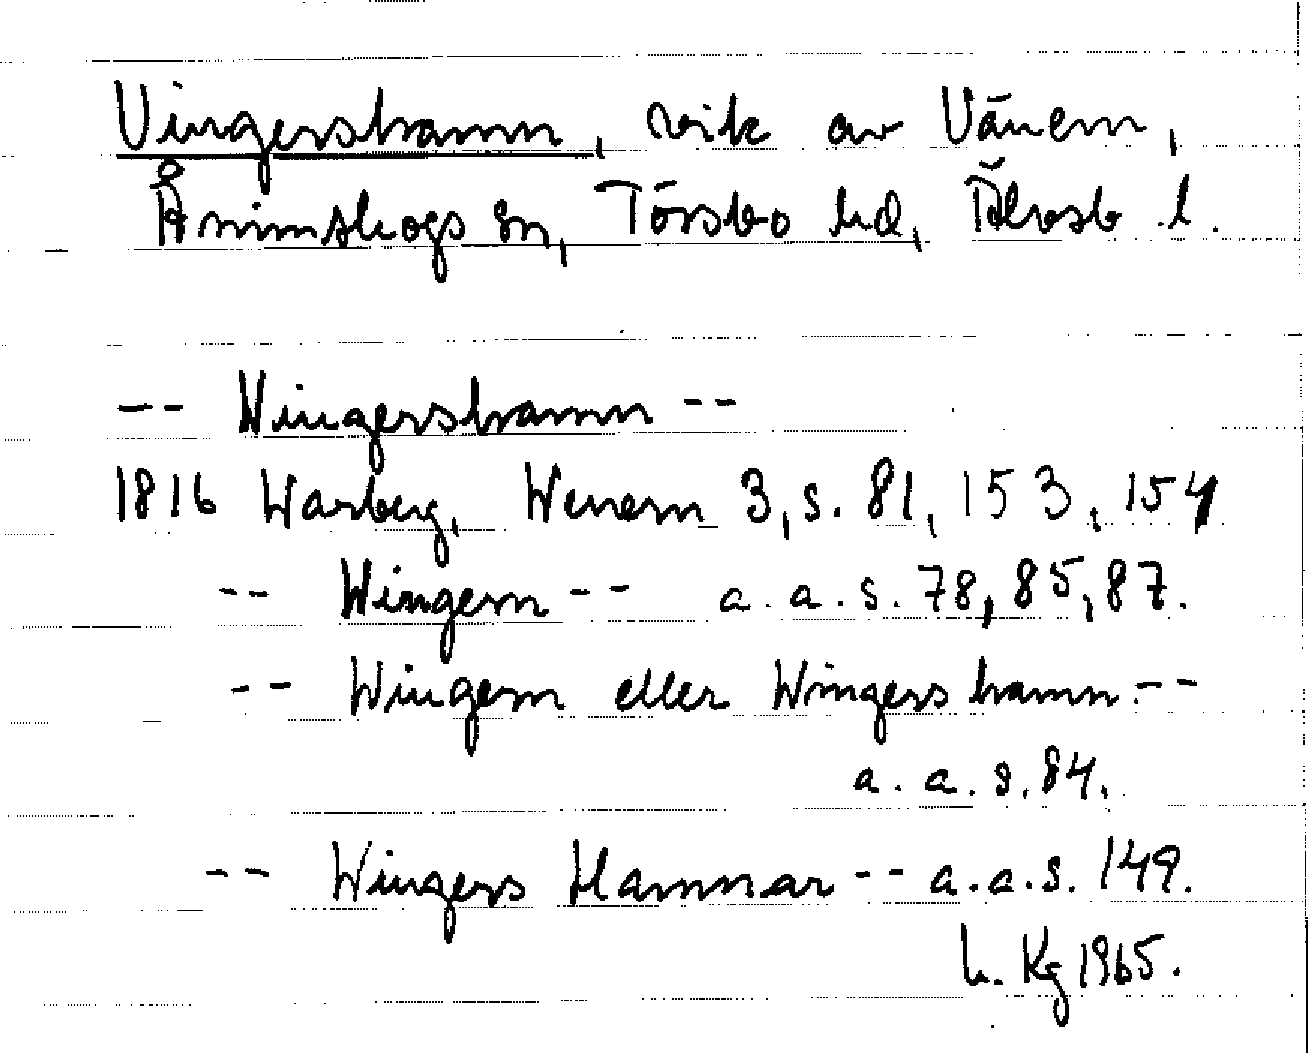 Vingershamn, vik av Vänern,
Ånimskogs sn, Tössbo hd, Älvsb l.
-- Wingershamn --
1816 Warberg, Wenern 3, s. 81, 153, 154
-- Wingern -- a. a. s. 78, 85, 87.
-- Wingern eller Wingers hamn --
a. a. s. 84.
-- Wingers Hamnar -- a. a. s. 149.
L. Kg 1965.